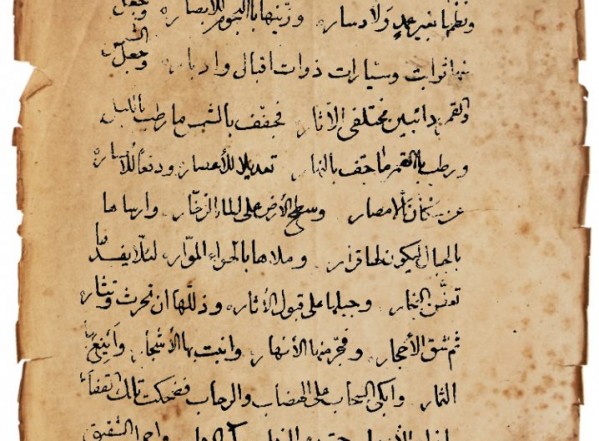 ونظمها بغير عمد ولا دسار وزينها بالنجوم للأبصار وجعل
منها ثوابت وسيارات ذوات اقبال وادبار وجعل الشمس
والقمر دائبين مختلفي الآثار فجفف بالشمس ما رطب بالليل
ورطب بالقمر ما جف بالنهار تعديلا للأعصار ودفعا للأ
عن سكان الأمصار وسطح الأرض على الماء الزخار وارساها
بالجبال ليكون لها قرار وملاها بالهواء الموار لئلا يفسد
تعفن البخار وجبلها على قبول الآثار وذللها ان تحرث وتثار
ثم شق الأحجار وفجر منها الأنهار وانبت بها الأشجار وأينع
الثمار وابكى السحاب على الهضاب والرحاب فضحكت تلك القفار